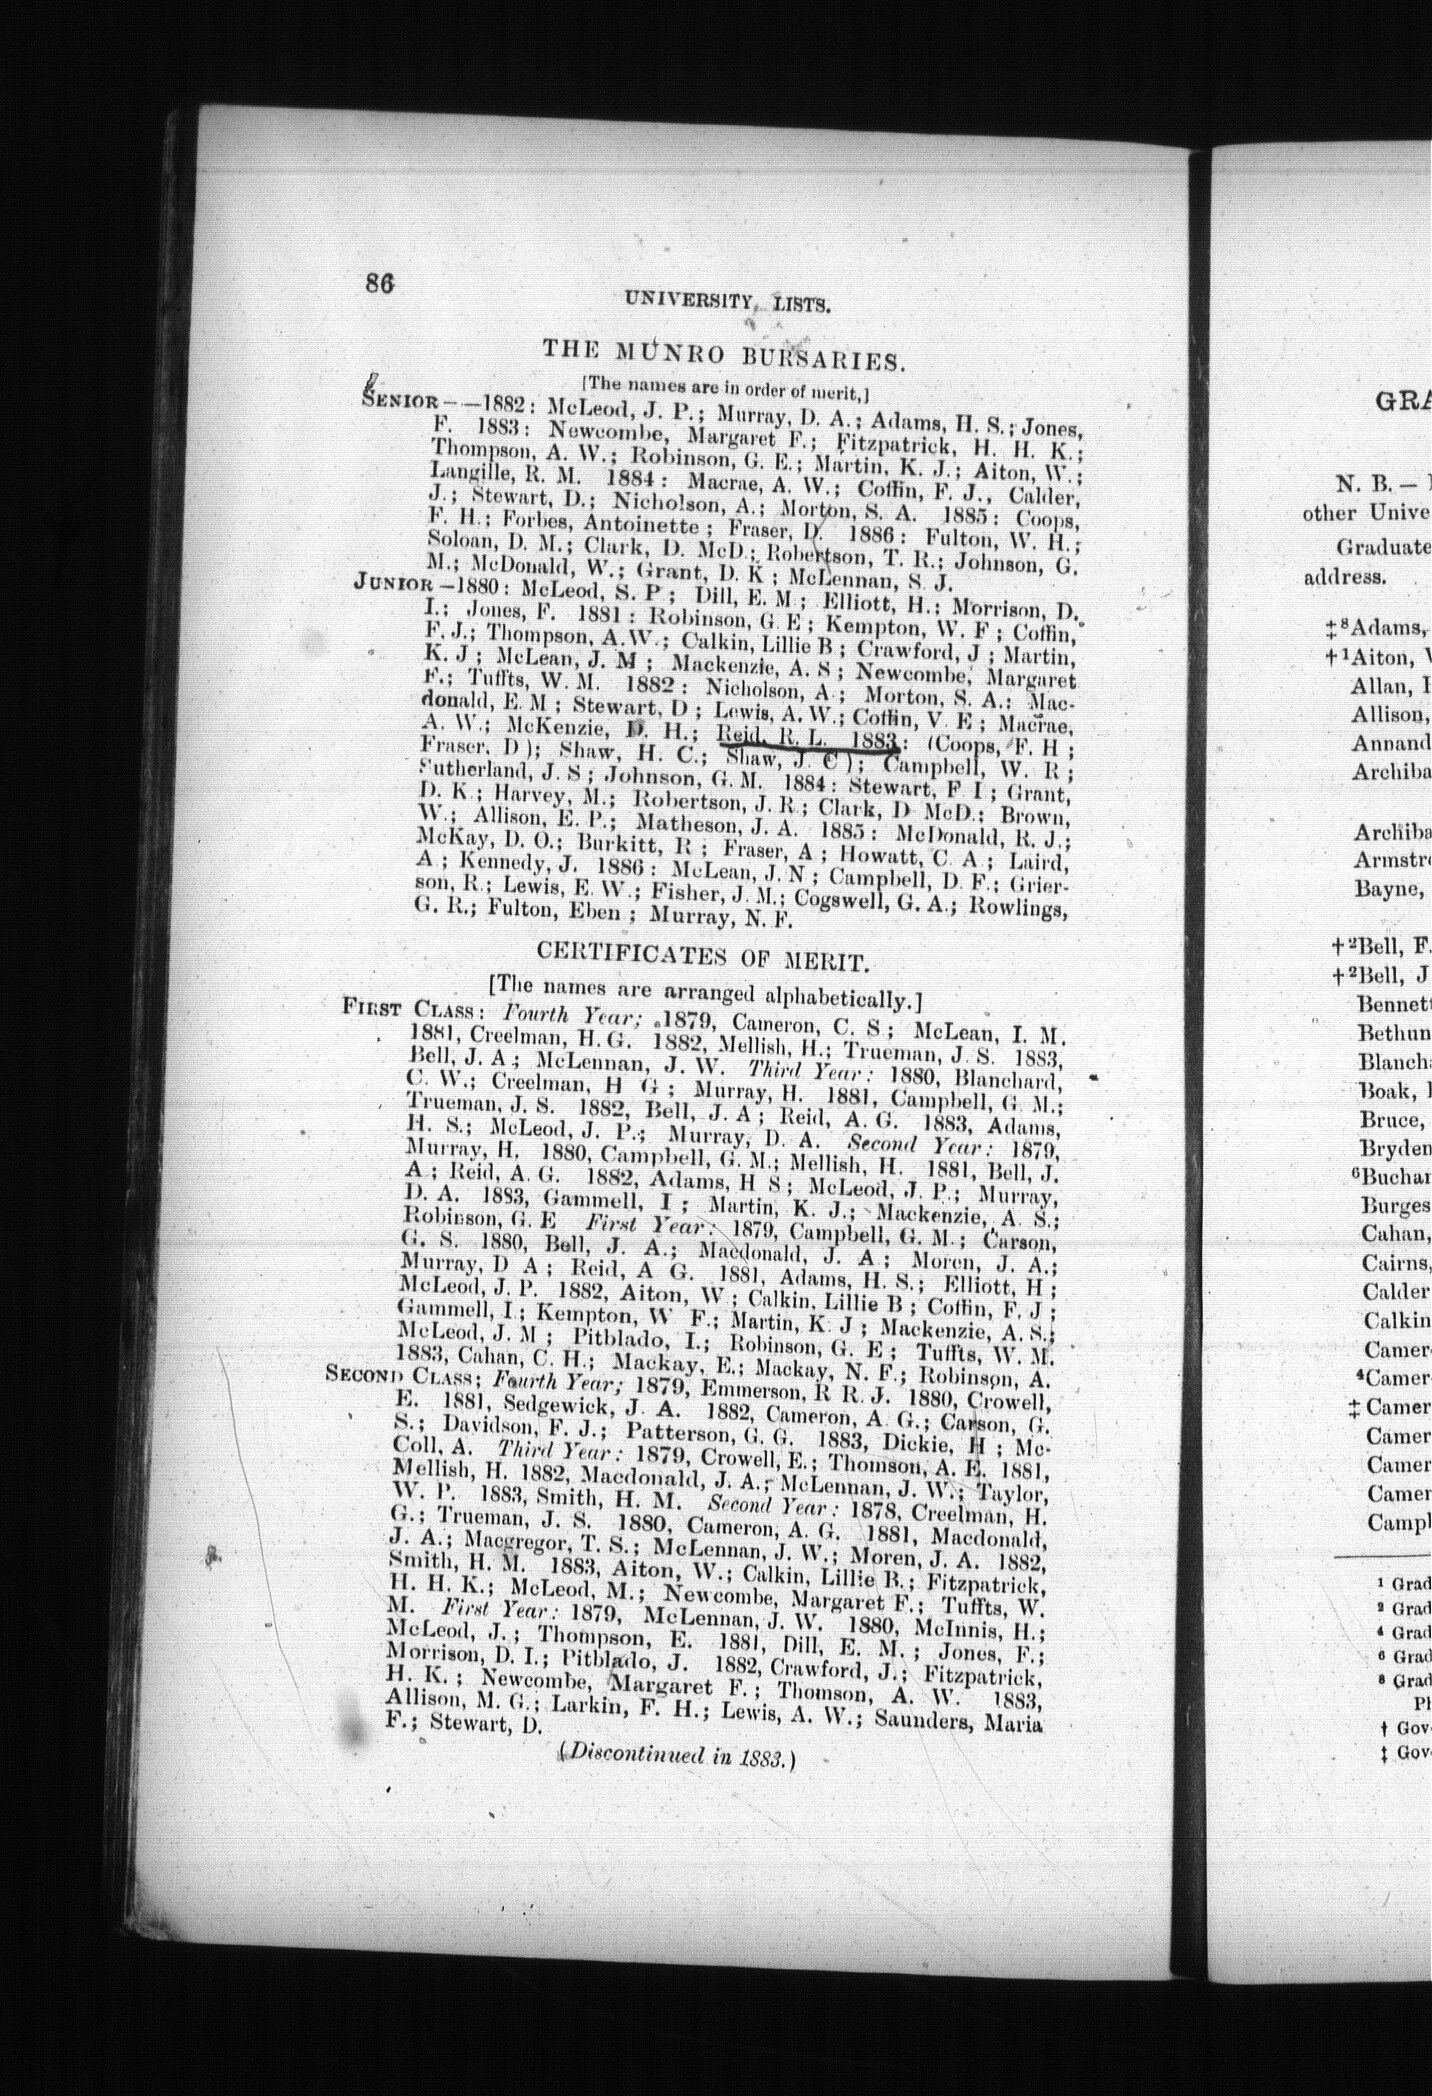 86
UNIVERSITY LISTS.
THE MUNRO BURSARIES.
[The names are in order of merit,]
SENIOR——1882: McLeod, J. P.; Murray, D. A.; Adams, H. S.; Jones,
F. 1883: Newcombe, Margaret F.; Fitzpatrick, H. H. K.;
Thompson, A. W.; Robinson, G. E.; Martin, K. J.; Aiton, W.;
Langille, R. M. 1884: Macrae, A. W.; Coffin, F. J., Calder,
J.; Stewart, D.; Nicholson, A.; Morton, S. A. 1885: Coops,
F. H.; Forbes, Antoinette; Fraser, D. 1886: Fulton, W. H.;
Soloan, D. M.; Clark, D. McD.; Robertson, T. R.; Johnson, G.
M.; McDonald, W.; Grant, D. K; McLennan, S. J.
JUNIOR—1880: McLeod, S. P; Dill, E. M; Elliott, H.; Morrison, D.
I.; Jones, F. 1881: Robinson, G. E; Kempton, W. F; Coffin,
F. J.; Thompson, A. W.; Calkin, Lillie B; Crawford, J; Martin,
K. J; McLean, J. M; Mackenzie, A. S; Newcombe, Margaret
F.; Tuffts, W. M. 1882: Nicholson, A.; Morton, S. A.; Mac-
donald, E. M; Stewart, D; Lewis, A. W.; Coffin, V. E; Macrae,
A. W.; McKenzie, D. H.; Reid, R. L. 1883: (Coops, F. H;
Fraser, D); Shaw, H. C.; Shaw, J. C); Campbell, W. R;
Sutherland, J. S; Johnson, G. M. 1884: Stewart, F. I; Grant,
D. K.; Harvey, M.; Robertson, J. R.; Clark, D McD.; Brown,
W.; Allison, E. P.; Matheson, J. A. 1885: McDonald, R. J.;
McKay, D. O.; Burkitt, R; Fraser, A; Howatt, C. A; Laird,
A; Kennedy, J. 1886: McLean, J. N; Campbell, D. F.; Grier-
son, R.; Lewis, E. W.; Fisher, J. M.; Cogswell, G. A.; Rowlings,
G. R.; Fulton, Eben; Murray, N. F.
CERTIFICATES OF MERIT.
[The names are arranged alphabetically.]
FIRST CLASS: Fourth Year; 1879, Cameron, C. S; McLean, I. M.
1881, Creelman, H. G. 1882, Mellish, H.; Trueman, J. S. 1883,
Bell, J. A.; McLennan, J. W. Third Year: 1880, Blanchard,
C. W.; Creelman, H G; Murray, H. 1881, Campbell, G. M.;
Trueman, J. S. 1882, Bell, J. A; Reid, A. G. 1883, Adams,
H. S.; McLeod, J. P.; Murray, D. A. Second Year: 1879,
Murray, H. 1880, Campbell, G. M.; Mellish, H. 1881, Bell, J.
A.; Reid, A. G. 1882, Adams, H S; McLeod, J. P.; Murray,
D. A. 1883, Gammell, I; Martin, K. J.; Mackenzie, A. S.;
Robinson, G. E First Year: 1879, Campbell, G. M.; Carson,
G. S. 1880, Bell, J. A.; Macdonald, J. A; Moren, J. A.;
Murray, D A; Reid, A G. 1881, Adams, H. S.; Elliott, H;
McLeod, J. P. 1882, Aiton, W; Calkin, Lillie B; Coffin, F. J;
Gammell, I; Kempton, W F.; Martin, K. J; Mackenzie, A. S.;
McLeod, J. M; Pitblado, I.; Robinson, G. E; Tuffts, W. M.
1883, Cahan, C. H.; Mackay, E.; Mackay, N. F.; Robinson, A.
SECOND CLASS; Fourth Year; 1879, Emmerson, R R. J. 1880, Crowell,
E. 1881, Sedgewick, J. A. 1882, Cameron, A. G.; Carson, G.
S.; Davidson, F. J.; Patterson, G. G. 1883, Dickie, H; Mc-
Coll, A. Third Year: 1879, Crowell, E.; Thomson, A. E. 1881,
Mellish, H. 1882, Macdonald, J. A.; McLennan, J. W.; Taylor,
W. P. 1883, Smith, H. M. Second Year: 1878, Creelman, H.
G.; Trueman, J. S. 1880, Cameron, A. G. 1881, Macdonald,
J. A.; Macgregor, T. S.; McLennan, J. W.; Moren, J. A. 1882,
Smith, H. M. 1883, Aiton, W.; Calkin, Lillie B.; Fitzpatrick,
H. H. K.; McLeod, M.; Newcombe, Margaret F.; Tuffts, W.
M. First Year: 1879, McLennan, J. W. 1880, McInnis, H.;
McLeod, J.; Thompson, E. 1881, Dill, E. M.; Jones, F.;
Morrison, D. I.; Pitblado, J. 1882, Crawford, J.; Fitzpatrick,
H. K.; Newcombe, Margaret F.; Thomson, A. W. 1883,
Allison, M. G.; Larkin, F. H.; Lewis, A. W.; Saunders, Maria
F.; Stewart, D.
(Discontinued in 1883.)
GRA
N. B.—
other Unive
Graduate
address.
‡⁸Adams,
†¹Aiton,
Allan,
Allison,
Annand
Archiba
Archiba
Armstr
Bayne,
†²Bell, F.
†²Bell, J
Bennett
Bethun
Blanch
Boak,
Bruce,
Bryden
⁶Buchan
Burges
Cahan,
Cairns,
Calder
Calkin
Camer
⁴Camer
‡Camer
Camer
Camer
Camer
Campl
¹ Grad
² Grad
⁴ Grad
⁶ Grad
⁸ Grad
Ph
† Gov
‡ Gov